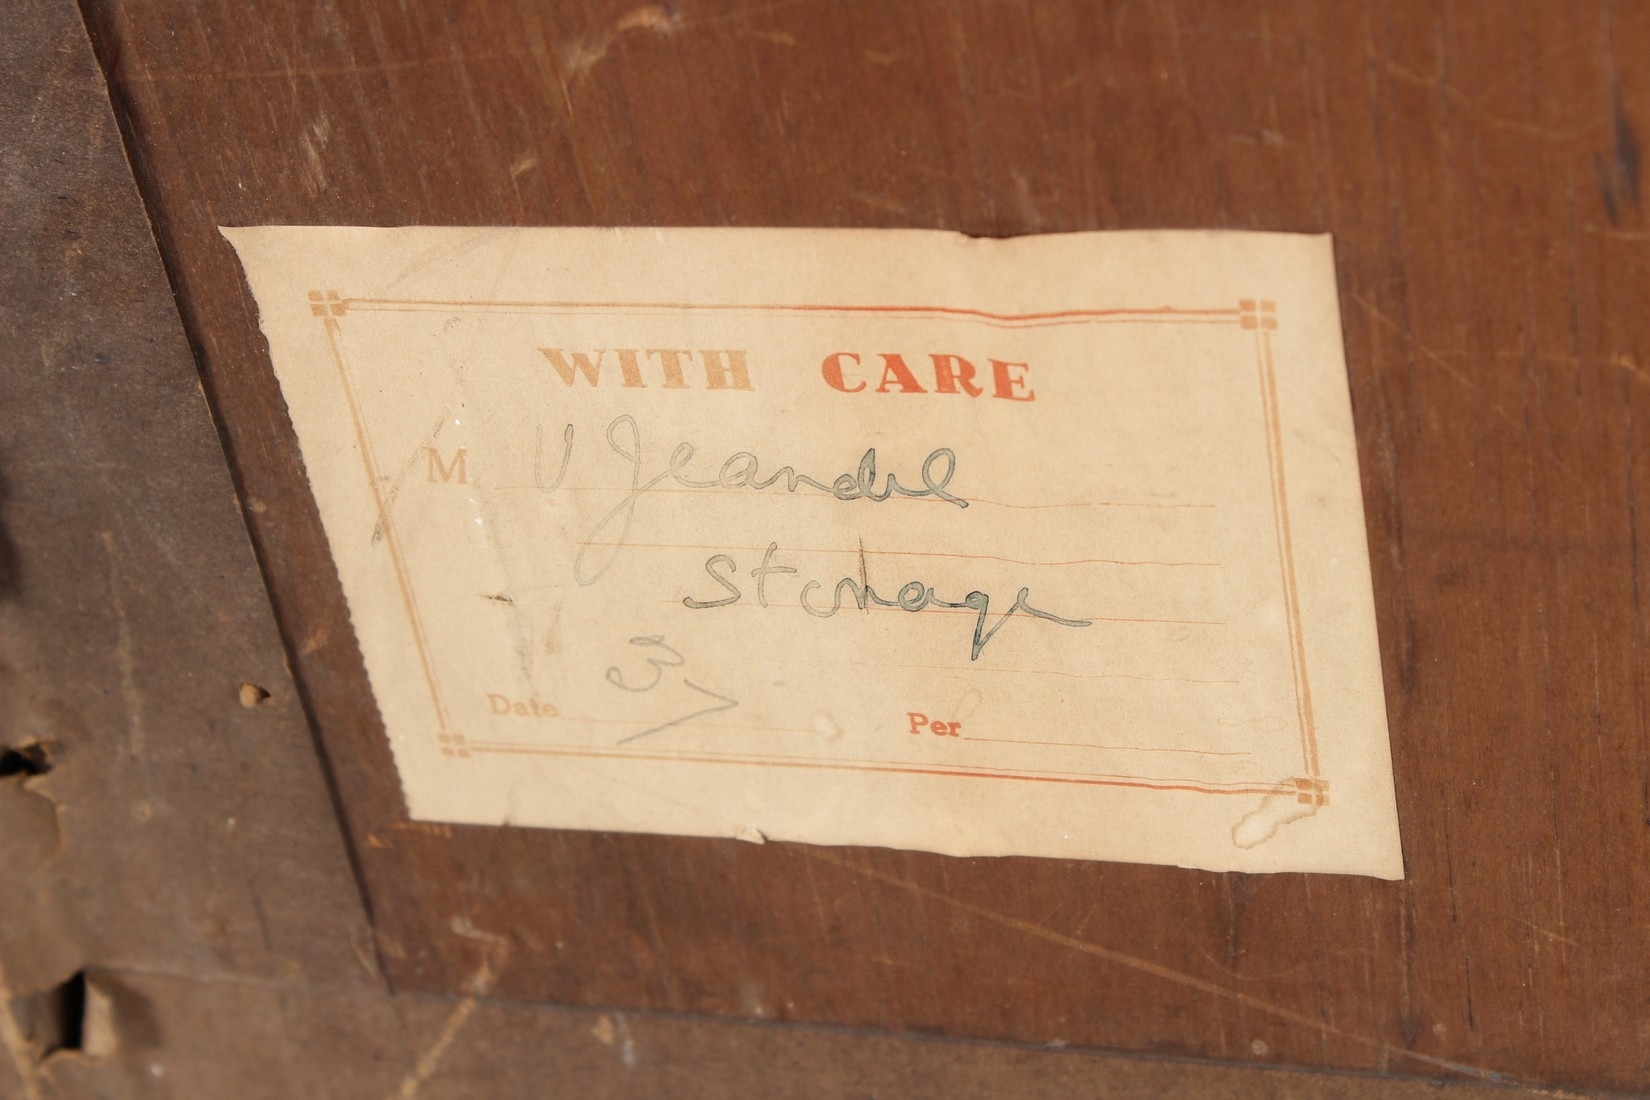 WITH CARE
M V Jeandel
Storage
Date
Per